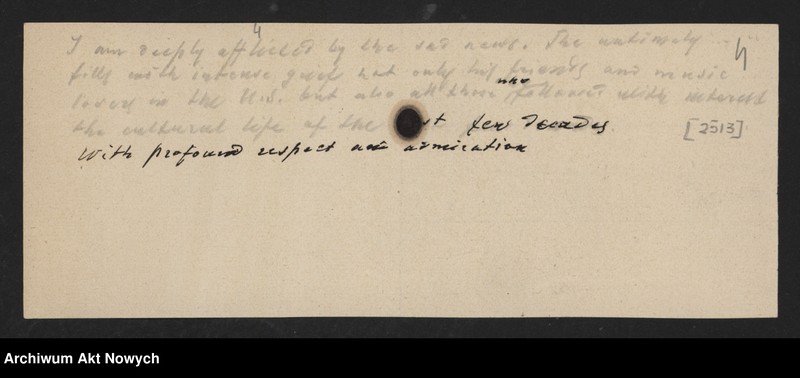 4
I am deeply afflicted by the sad news. The untimely ... 4
fills with intense grief not only his friends and music
who
lovers in the U.S. but also all those followed with interest
the cultural life of the st few decades. [2513]
With profound respect and admiration
Archiwum Akt Nowych